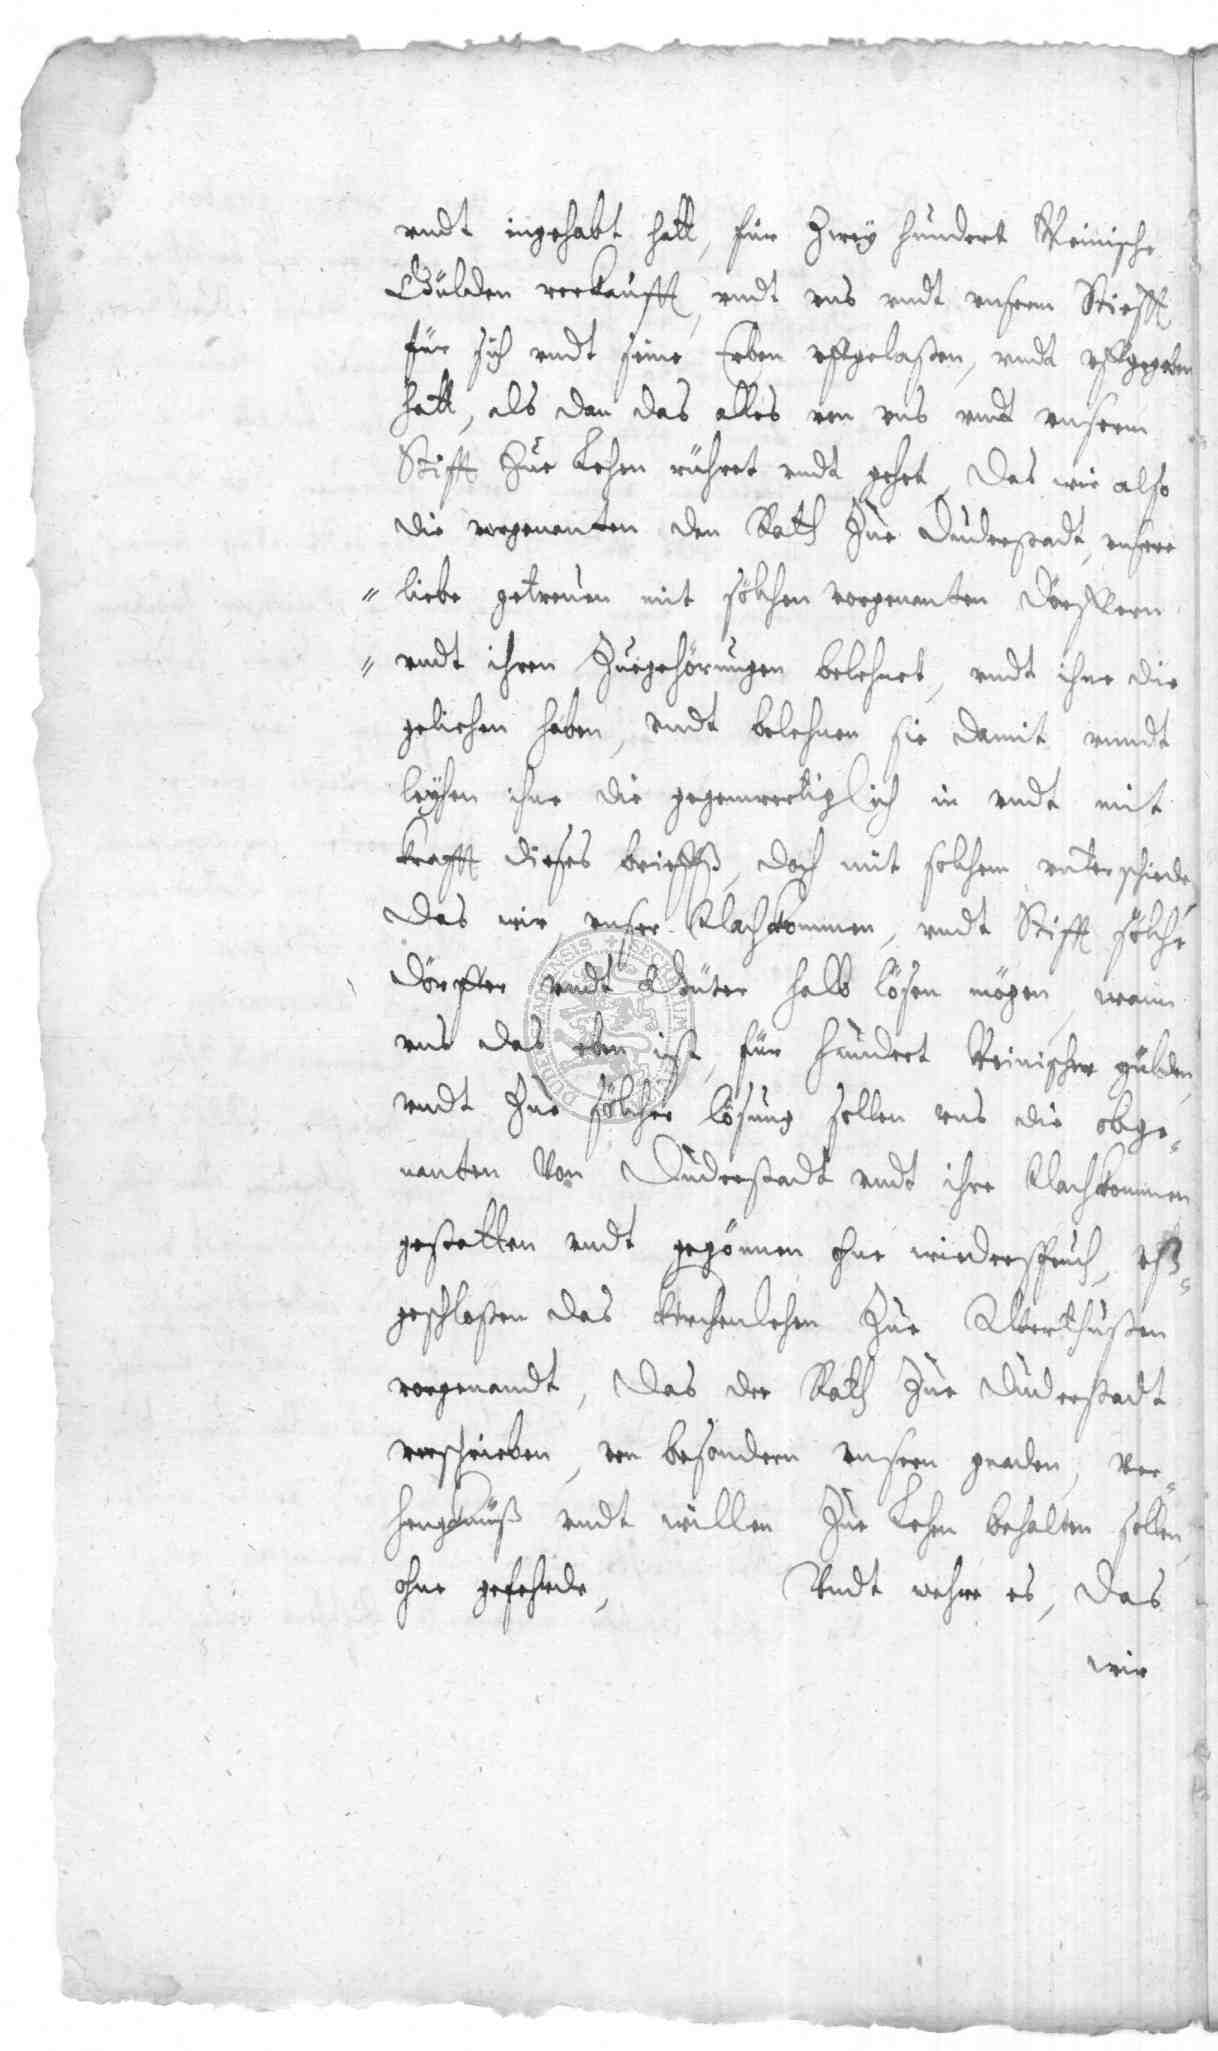 vndt ingehabt hatt, für Zwey hundert Reinische
Gülden verkaufft, vndt vns vndt vnserm Stifft
für sich vndt seine Erben vffgelaßen, vndt vffgegeben
hatt, als dan das alles von vns vndt vnserm
Stifft Zue Lehen rühret vndt gehet, Das wir also
die vorgenanten den Rath Zue Duderstadt, vnsere
" liebe getreuen mit solchen vorgenanten Dörffern
" vndt ihren Zuegehörungen belehnet, vndt ihne die
geliehen haben, vndt belehnen sie damit vnndt
leyhen ihne die gegenwertiglich in vndt mit
krafft dieses brieffß, doch mit solchem vnterschiede
Das wir, vnser Nachkommen, vndt Stifft solche
Dörffer vndt Güter halb lösen mögen, wann
vns das eben ist, für hundert Reinischer gülden,
vndt Zue solcher lösung sollen vns die obge-
nanten Von Duderstadt vndt ihre Nachkommen
gestatten vndt gegönnen ohne wiederspruch, vß-
geschloßen das kirchenlehen Zue
vorgenandt, Das der Rath Zue Duderstadt
verschrieben, von besondern vnsern gnaden, ver-
hengknüß vndt willen Zue Lehen behalten sollen,
ohne gefehrde, Vndt wehre es, Das
wir
DUDERSTADENSIS SECRETUM